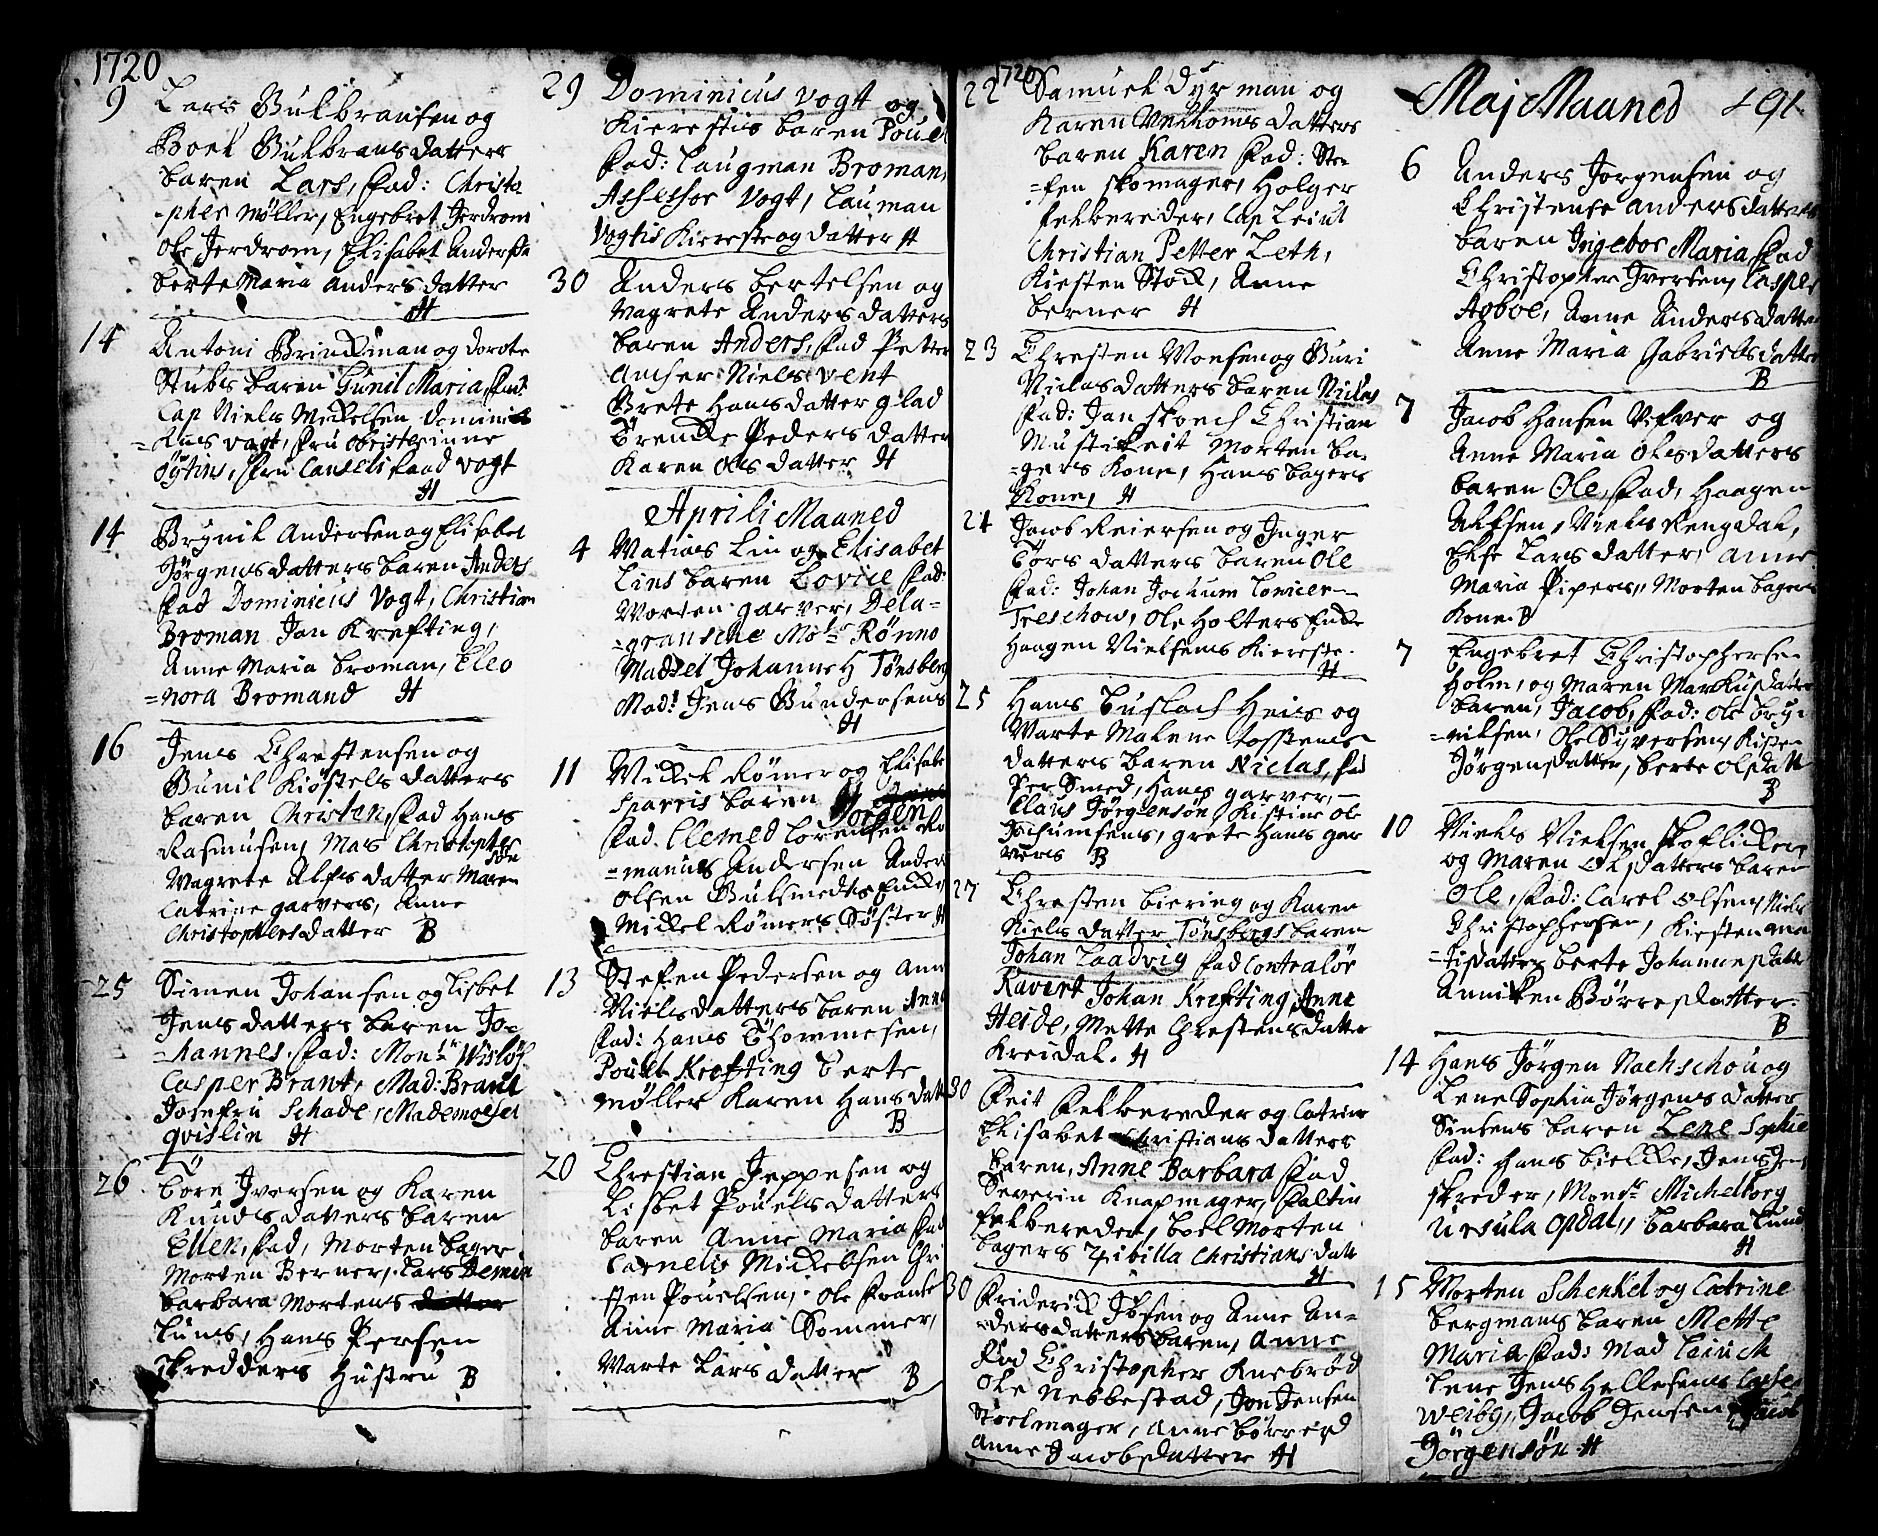 1720
9 Lars Gulbransen og
Boel Gulbrans datters
baren Lars, fad: Christo
-pher Møller, Engebret Jerdrom
Ole Jerdrom, Elisabet Anders
berte Maria Anders datter
H
14 Antoni Brinckman og Dorote
Stubs baren Gunil Maria, fad:
Cap Niels Mickelsen Domini
-cus vogt, fru Obersterinne
Øÿtins, fru Canseliraad vogt
H
14 Brynil Andersen og Elisabet
Jørgens datters baren Anders
fad Dominicus Vogt, Christian
Broman Jan Krefting,
Anne Maria broman, Eleo
=nora Bromand H
16 Jens Chrestensen og
Gunil Kiøstels datters
baren Christen, fad Hans
Rasmusen, Mas Christophe
søn
Magrete Alfs datter Maren
Catrine garvers, Anne
Christophersdatter B
25 Simen Johansen og Lisbet
Jens datters baren Jo=
=hannes. fad: Monsr
Casper Brant, Mad: Brant
Josefru Schade, Mademoesel
qvislin H
26 Tore Iversen og Karen
Knuds daters baren
Ellen, fad, Morten bager
Morten Berner, Lars
barbara Mortens
Tuns, Hans Persen
skredders Hustru B
29 Dominicus vogt og
Kierestis baren Pouel
fad: Laugman Broman,
Assessor Vogt, Lauman
Vogtis Kiereste og datter H
30 Anders bertelsen og
Magrete Anders datters
baren Anders, fad Petter
Anser Niels vent
Grete Hans datter glad
Trenke Peders datter
Karen Ols datter H
Aprili Maaned
4 Matias Lin og Elisabet
Lins baren Lovise fad:
Morten garver, Dela=
=gransche Mosr Rønno
Madsel Johanne H Tønsberg
Mad: Jens Gundersens
H
11 Mickel Rømer og Elisabe
Sparris baren
Jorgen
fad. Clemed Lorentsen Ro
=manus Andersen Anders
Olsen Gulsmedts Encke
Mickel Rømers Søster H
13 Stefen Pedersen og Ann
Niels datters baren Anne
fad: Hans Thommesen,
Pouel Krefting berte
Møller Karen Hans datt
B
20 Chrestian Jeppesen og
Lisbet Pouels datters
baren Anne Maria fad
Cornelis Mickelsen Chri
sten Pouelsen, Ole Franke
Anne Maria Sommer,
Marte Lars datter B
1720
22 Samuel Dyrman og
Karen Velhoms datters
baren Karen fad: Ste=
=fen skomager, Holger
felbereder, Cap Leiut
Christian Petter Leth,
Kiesten Stock, Anne
berner H
23 Chresten Monsen og Guri
Niclas datters baren Niclas
fad: Jan skoech Christian
Mustikeit Morten ba=
=gers Kone, Hans bagers
Kone, H
24 Jacob Reiersen og Inger
Tors datters baren Ole
fad: Johan Jochum Lonicer
Treschow, Ole Holters Encke
Haagen Nielsens Kiereste.
H
25 Hans Tuslach Heis og
Marte Malene
datters baren Niclas, fad
Per Smed, Hans garver,
Claus Jørgensøn Kistine ole
Jochumsens, grete Hans gar
vers B
27 Chresten biering og Karen
Niels datter Tønsbergs baren
Johan Laadvig fad Contralør
Ravert Johan Krefting, Anne
Heide, Mette Chrestensdatter
Kreidal. H
30 Feit Felbereder og Catrine
Elisabet Christians datters
baren, Anne Barbara fad
Severin Knapmager, Faltin
felbereder, boel Morten
bagers Zibilla Christians datt
H
30 Friderick Jøsen og Anne An=
=ders datters baren, Anne
Fad Christopher Anebrød
Ole Nebbestad, Jon Jensen
Stoelmager, Anne børresd
Anne Jacobsdatter H
Maj Maaned 191.
6 Anders Jorgensen og
Christense Anders datters
baren Ingebor Maria, fad
Christopher Iversen, Casper
Agboe, Anne Anders datter
Anne Maria Gabriels datter
B
7 Jacob Hansen Vefver og
Anne Maria Ols datters
baren Ole, fad, Haagen
Alfsen, Niels Rengdal,
Else Lars datter, Anne
Maria Pipers, Morten bagers
Kone. B
7 Engebret Christophersen
Holm, og Maren Markus datter
baren, Jacob, fad: Ole bry=
=nilsen, Ole Syversen,
Jørgensdatter, berte olsdatt
B
10 Niels Nielsen skoflicker,
og Maren Olsdatters baren
Ole, fad: Carel Olsen, Niels
Christophersen, Kiesten
=tisdatter berte Johannesdatt
Anniken Børresdatter.
B
14 Hans Jörgen Nachschou og
Lene Sophia Jörgens datter
Sinsens baren Lene Sophie
fad: Hans bielcke, Jens Jens
skreder, Monsr Michelborg
Ursula Opdal, barbara Lund
H
15 Morten Schenkel og Catrine
bergmans baren Mette
Maria fad: Mad Lauch
Lene Jens Hellesens Casper
Weiby, Jacob Jensen
Jörgensön H